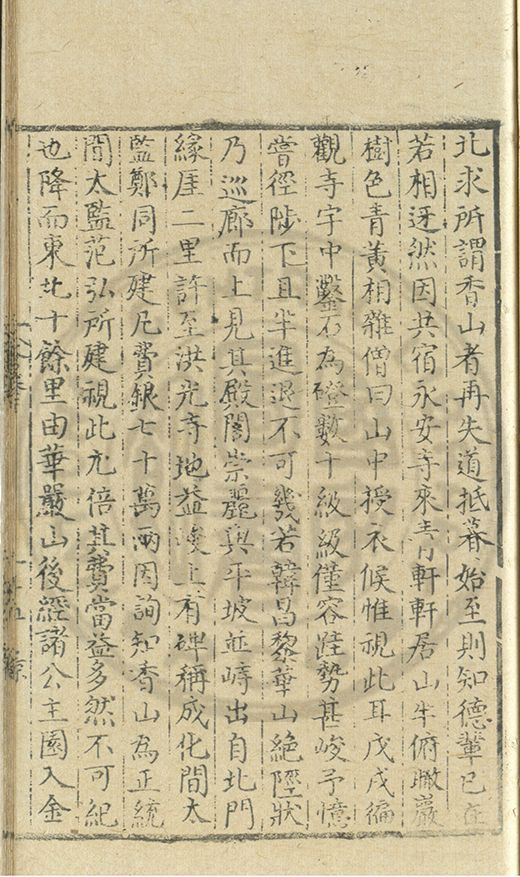 北求所謂香山者再失道抵暮始至則知德輩已在
若相迓然因共宿永安寺來青軒軒居山半俯瞰巖
樹色青黃相雜僧曰山中授衣候惟視此耳戊戌徧
觀寺宇中鑿石為磴數十級級僅容跬勢甚峻予憶
嘗徑陟下且半進退不可幾若韓昌黎華山絕陘狀
乃巡廊而上見其殿閣崇麗與平坡並峙出自北門
緣厓二里許至洪光寺地益峻上有碑稱成化間太
監鄭同所建凡費銀七十萬兩因詢知香山為正統
間太監范弘所建視此尤倍其費當益多然不可紀
也降而東北十餘里由華嚴山後經諸公主園入金